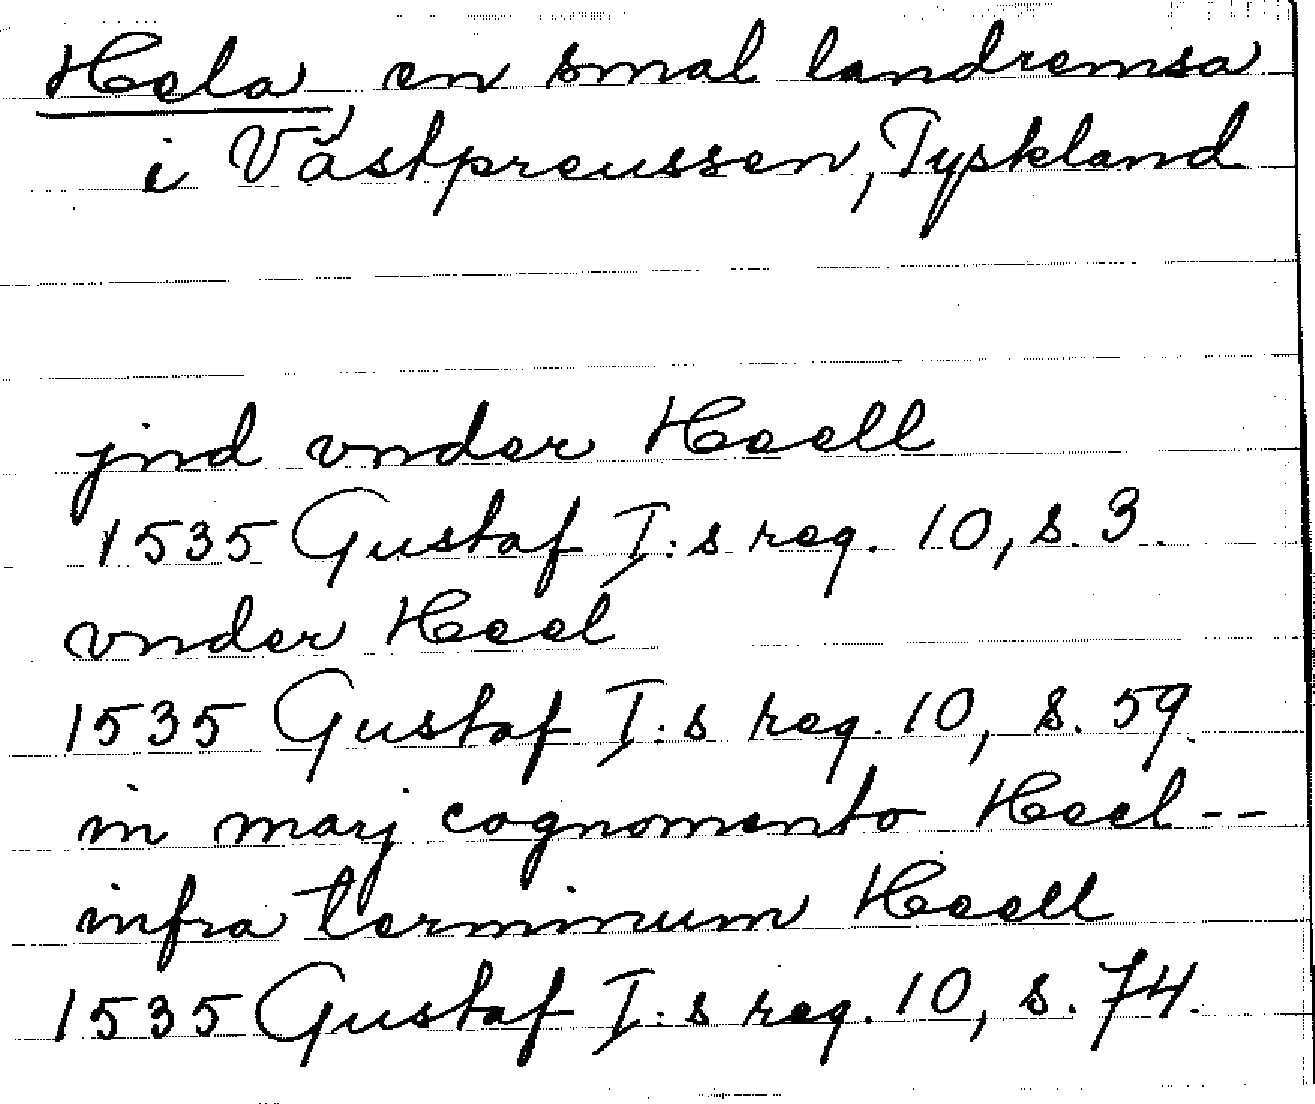 Hela, en smal landremsa
i Västpreussen, Tyskland
jnd vnder Heell
1535 Gustaf I:s reg. 10, s. 3.
vnder Heel
1535 Gustaf I:s reg. 10, s. 59.
in marj cognomento Heel--
infra terminum Heell
1535 Gustaf I:s reg. 10, s. 74.